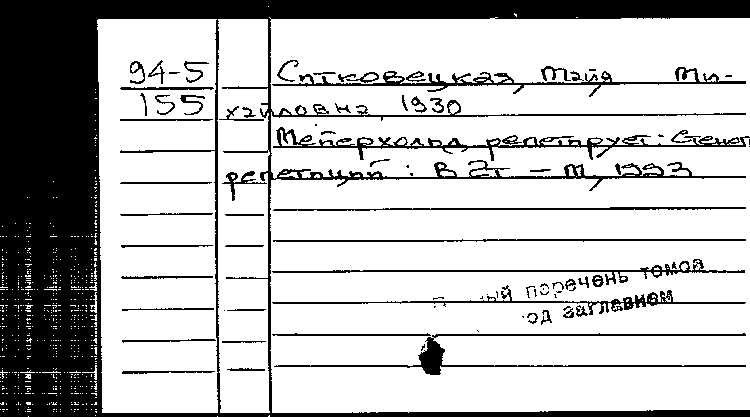 94-5 Ситковецкая, Майя Ми-
155 хайловна, 1930
Мейерхольд репетирует: Стеног
репетиций: В 2т - М, 1993
ый перечень томов
од заглавием